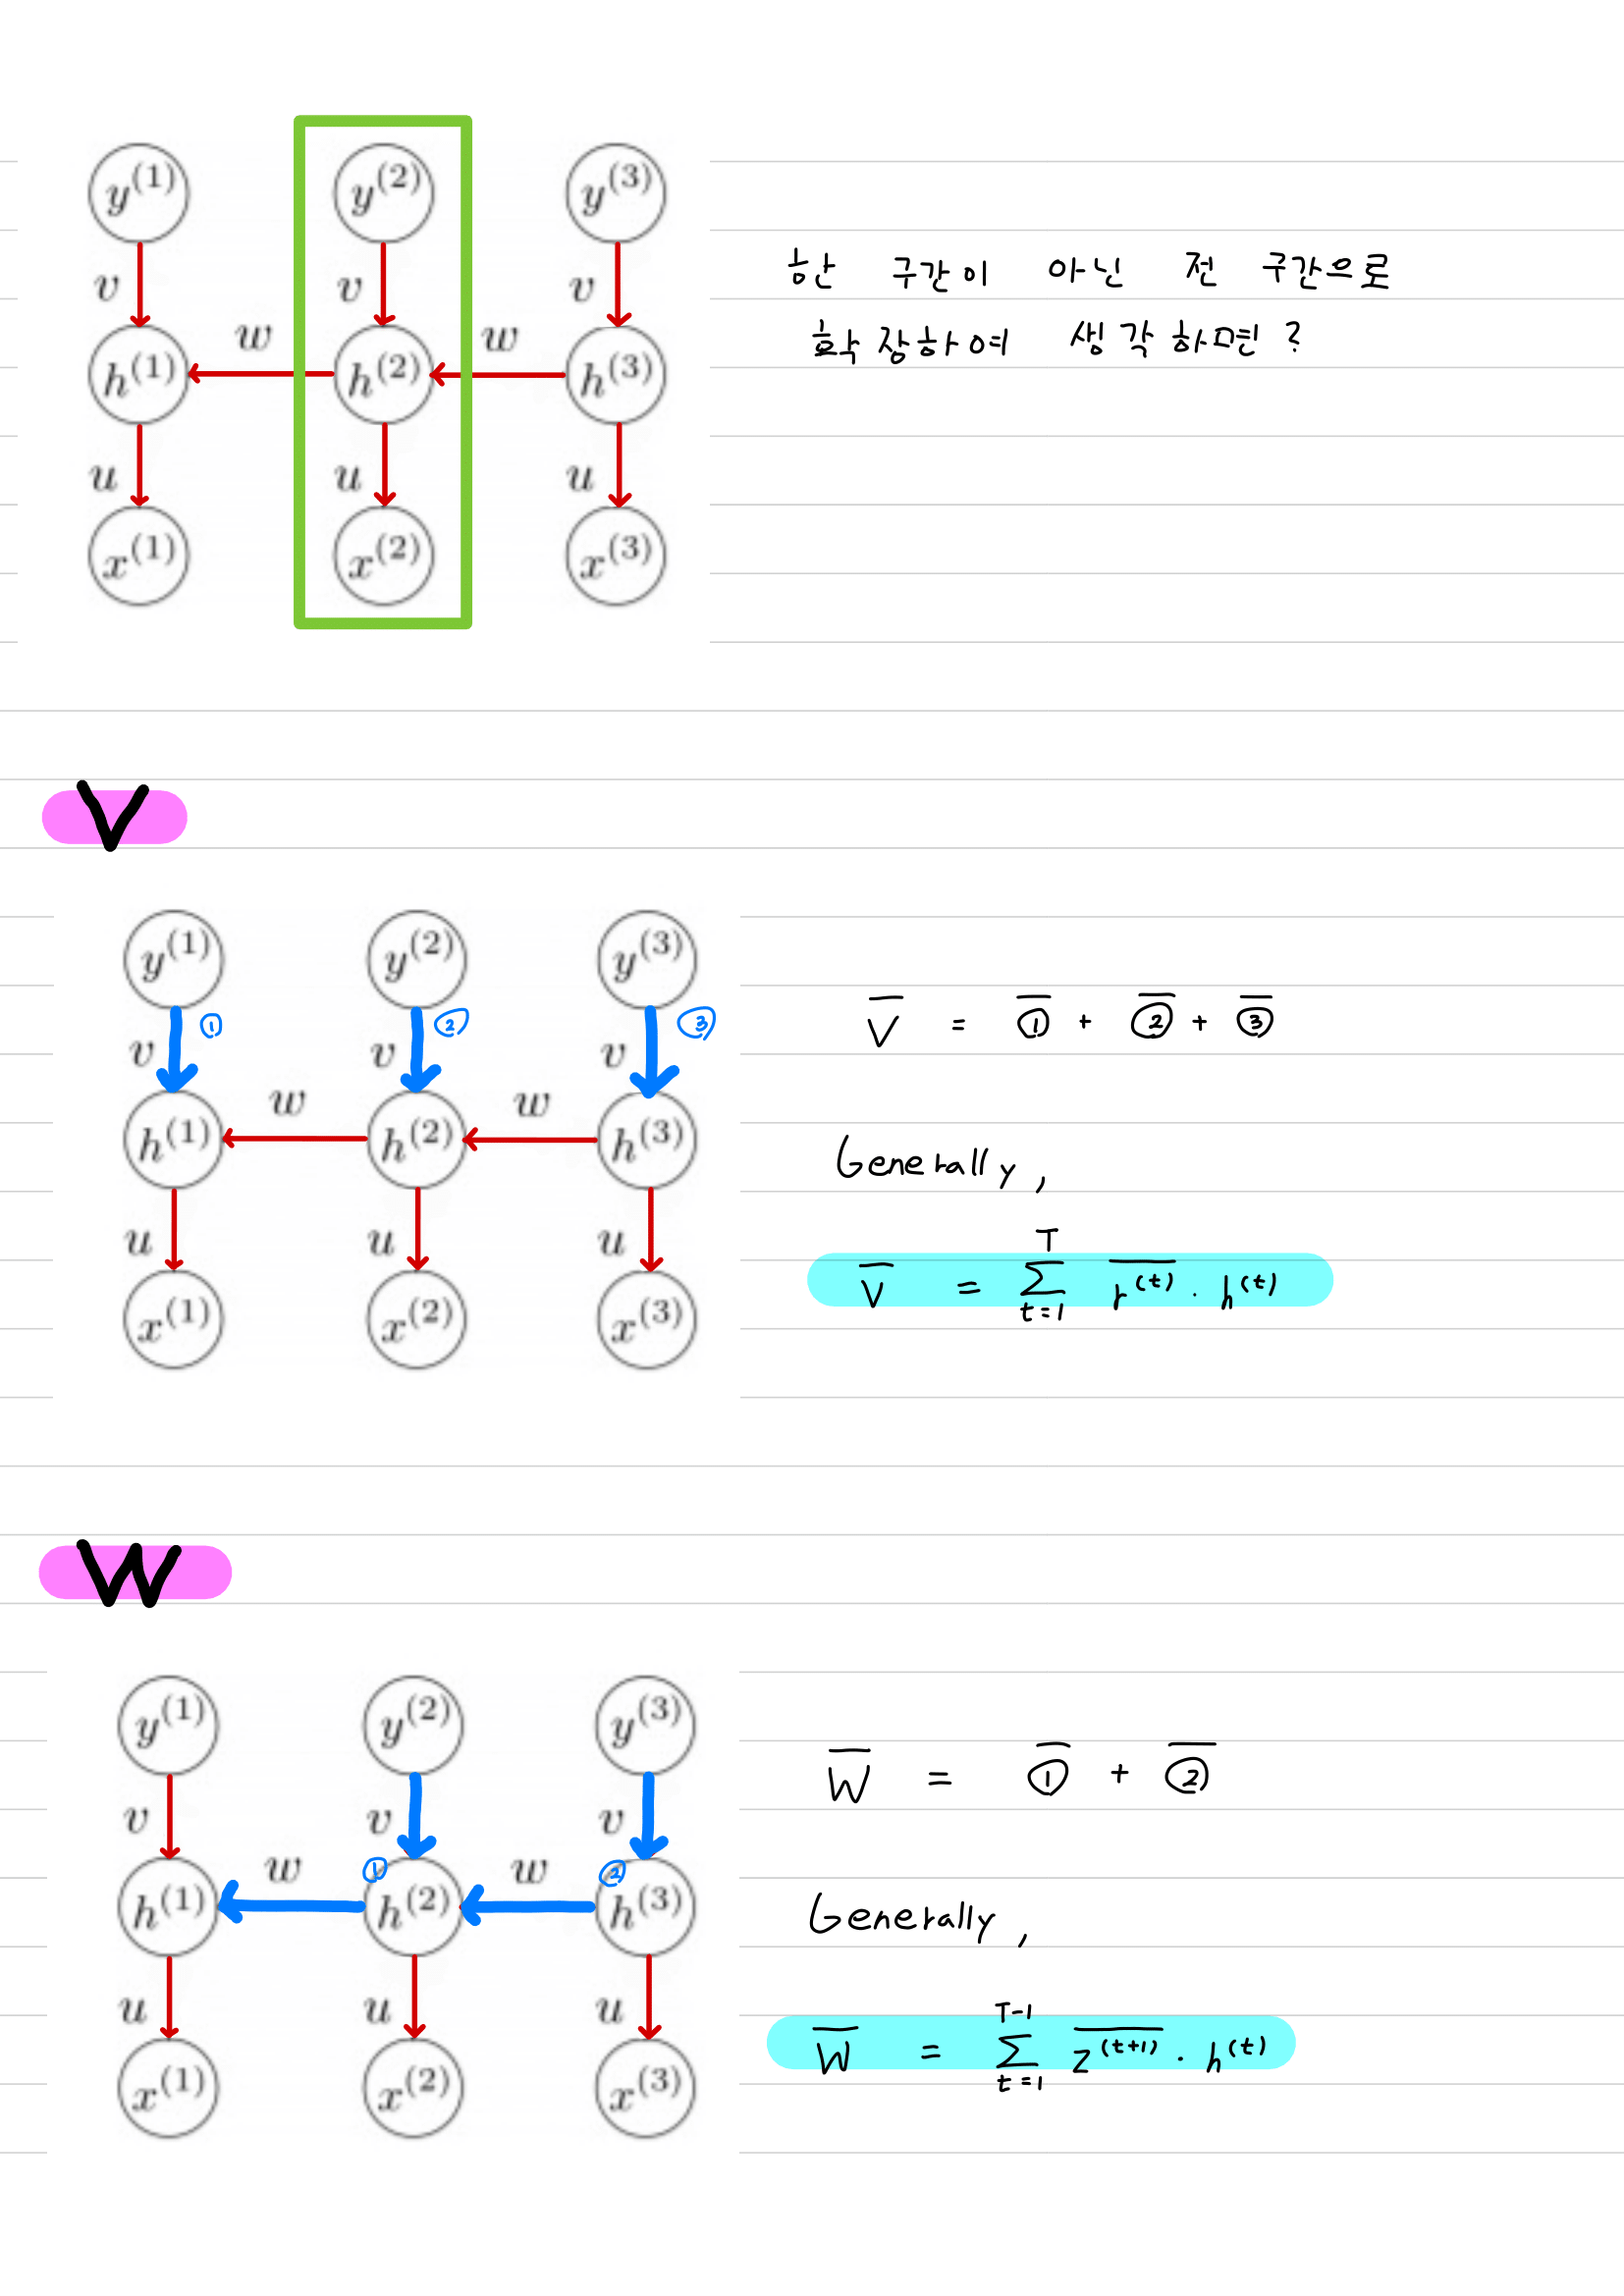 y^(1) y^(2) y^(3)
v v v
w w
h^(1) h^(2) h^(3)
u u u
x^(1) x^(2) x^(3)
한 구간이 아닌 전 구간으로
확장하여 생각하면?
V
y^(1) y^(2) y^(3)
① ② ③
v v v
w w
h^(1) h^(2) h^(3)
u u u
x^(1) x^(2) x^(3)
V̅ = ①̅ + ②̅ + ③̅
Generally,
V̅ = Σ_{t=1}^{T} \overline{r^(t)} · h^(t)
W
y^(1) y^(2) y^(3)
v v v
① ②
w w
h^(1) h^(2) h^(3)
u u u
x^(1) x^(2) x^(3)
W̅ = ①̅ + ②̅
Generally,
W̅ = Σ_{t=1}^{T-1} \overline{z^(t+1)} · h^(t)